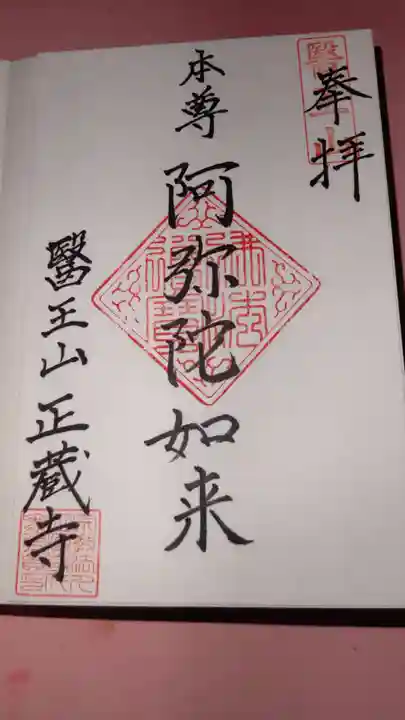 奉拝
本尊
阿弥陀如来
醫王山正蔵寺